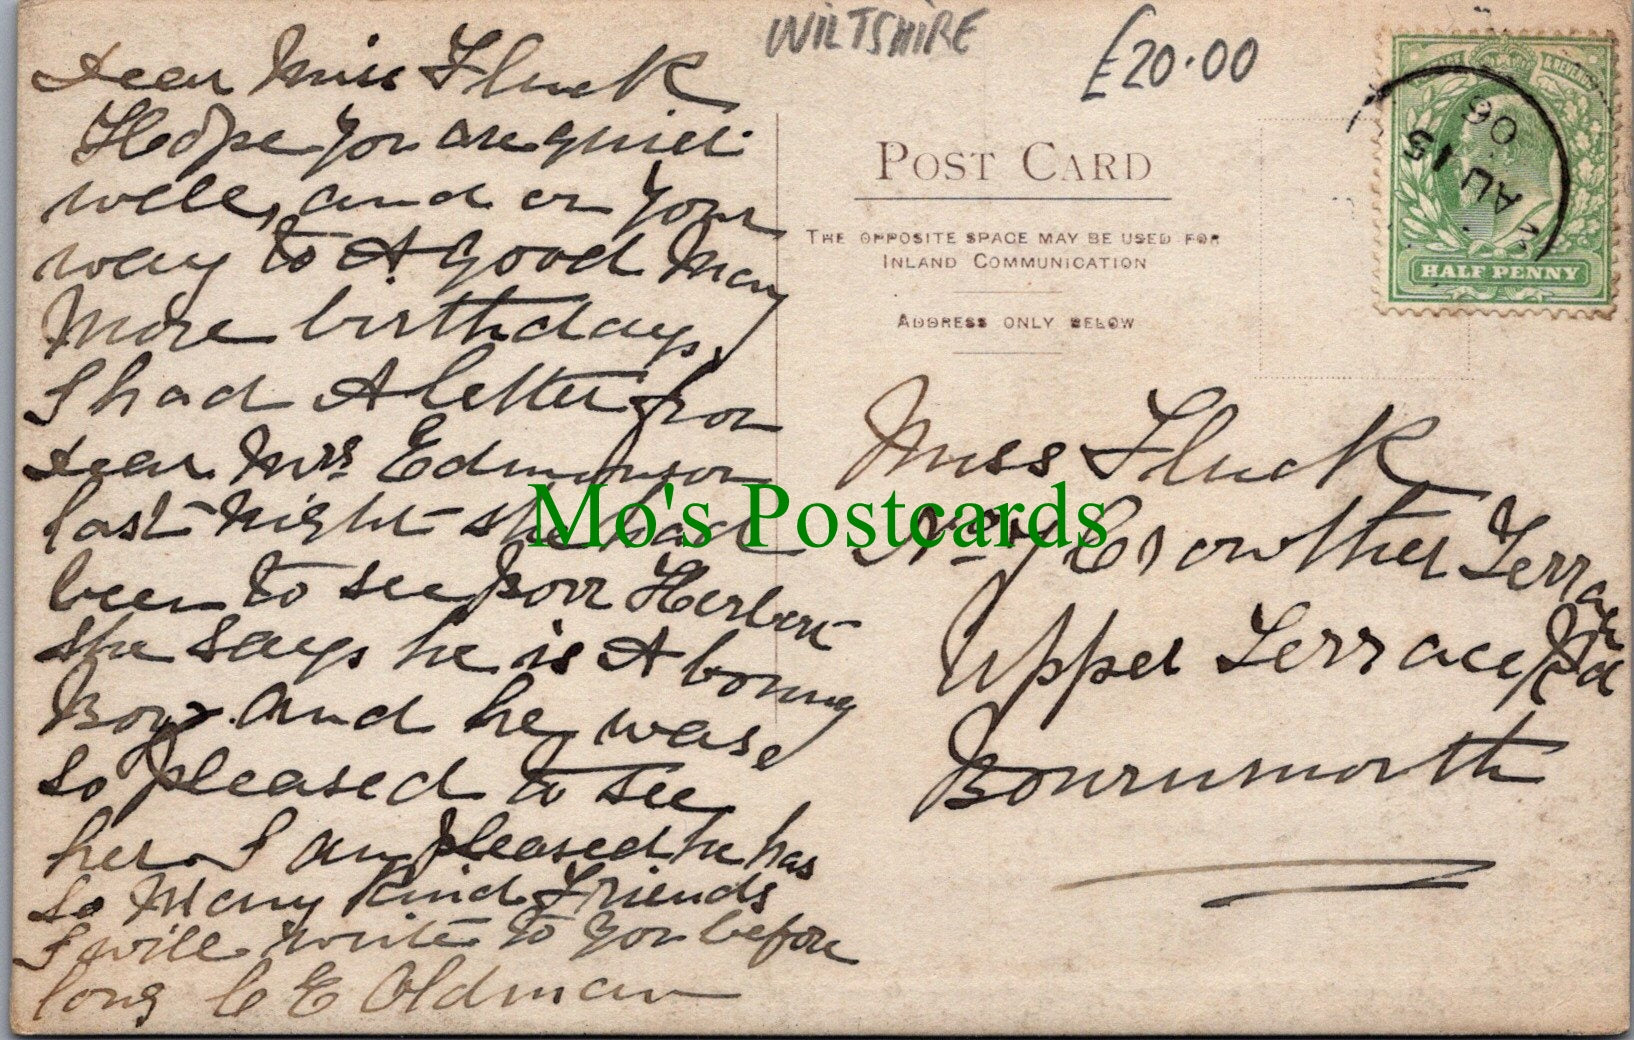 WILTSHIRE
£20.00
Dear Miss Fluck
Hope you are quiet
well, and on your
way to A good Many
More birthdays,
I had A letter from
Dear Mrs Edmonson
last night she had
been to see poor Herbert
she says he is A bonny
Boy. and he wase
so pleased to see
her. I am pleased he has
so Many Kind Friends
I will write to you before
long C E Oldman
POST CARD
THE OPPOSITE SPACE MAY BE USED FOR
INLAND COMMUNICATION
ADDRESS ONLY BELOW
& REVENUE
HALF PENNY
AU 15
06
Miss Fluck
No. 4 Crowther Terrace
Upper Terrace Rd
Bournmorth
Mo's Postcards